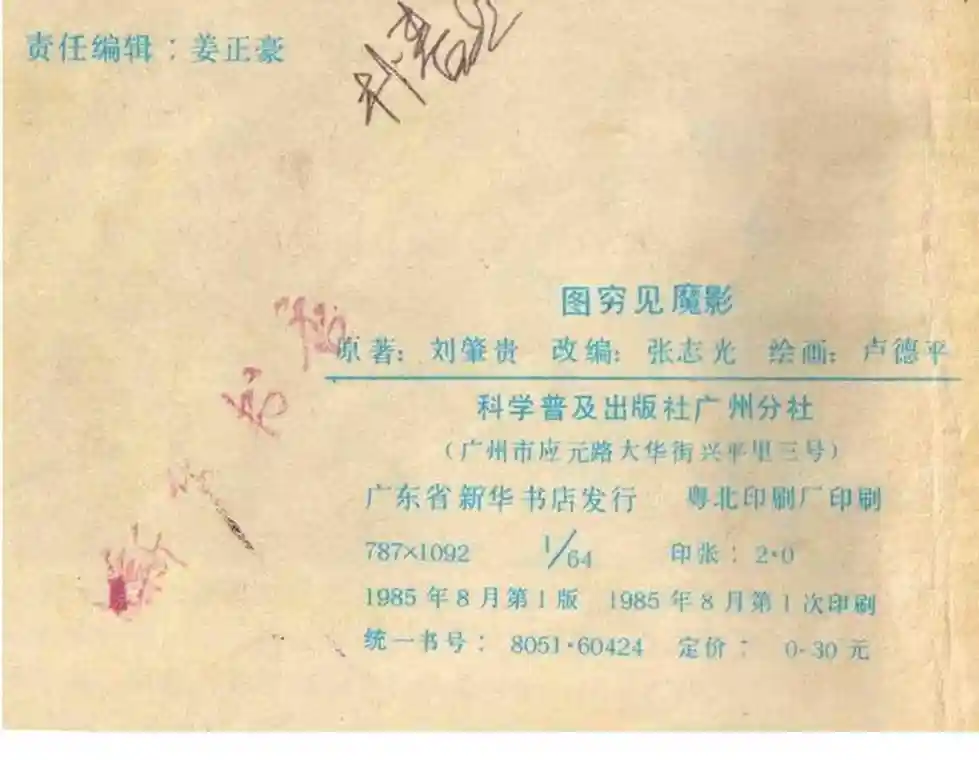 责任编辑：姜正豪
图穷见魔影
原著：刘肇贵 改编：张志光 绘画：卢德平
科学普及出版社广州分社
（广州市应元路大华街兴平里三号）
广东省新华书店发行 粤北印刷厂印刷
787×1092 1/64 印张：2·0
1985年8月第1版 1985年8月第1次印刷
统一书号：8051·60424 定价：0·30元